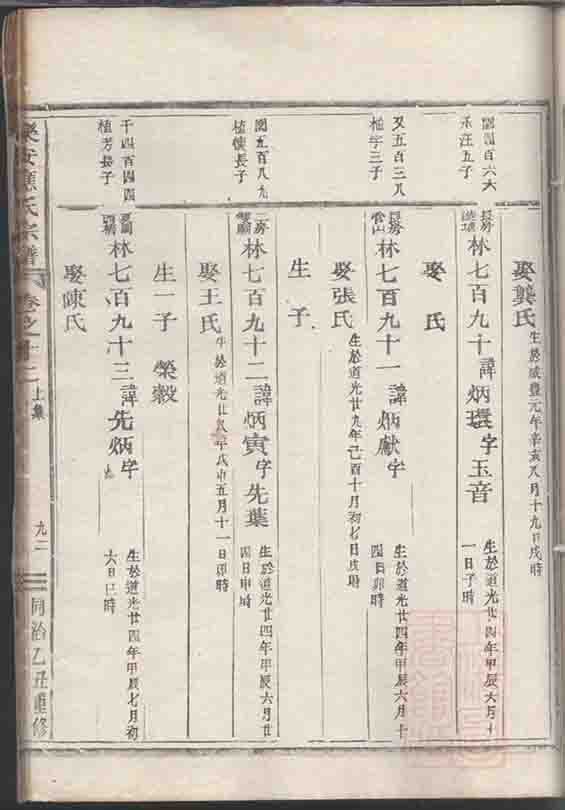 娶龔氏
生於咸豐元年辛亥八月十九日戌時
禾汪五子
林七百九十
諱炳琪字玉音
生於道光廿四年甲辰六月十
一日子時
娶 氏
又五百三八
植宇三子
長房
林七百九十一
諱炳獻字
生於道光廿四年甲辰六月十
四日卯時
娶張氏
生於道光廿九年己酉十月初七日戌時
生 子
園五百八九
植懷長子
二房
林七百九十二
諱炳寅字先葉
生於道光廿四年甲辰六月廿
四日申時
娶王氏
生於道光廿八年戊申五月十一日卯時
生一子 榮穀
千四百四四
植芳長子
林七百九十三
諱先炳字
生於道光廿四年甲辰七月初
六日巳時
娶陳氏
樂安蔣氏宗譜
卷之十二
上集
九二
同治乙丑重修